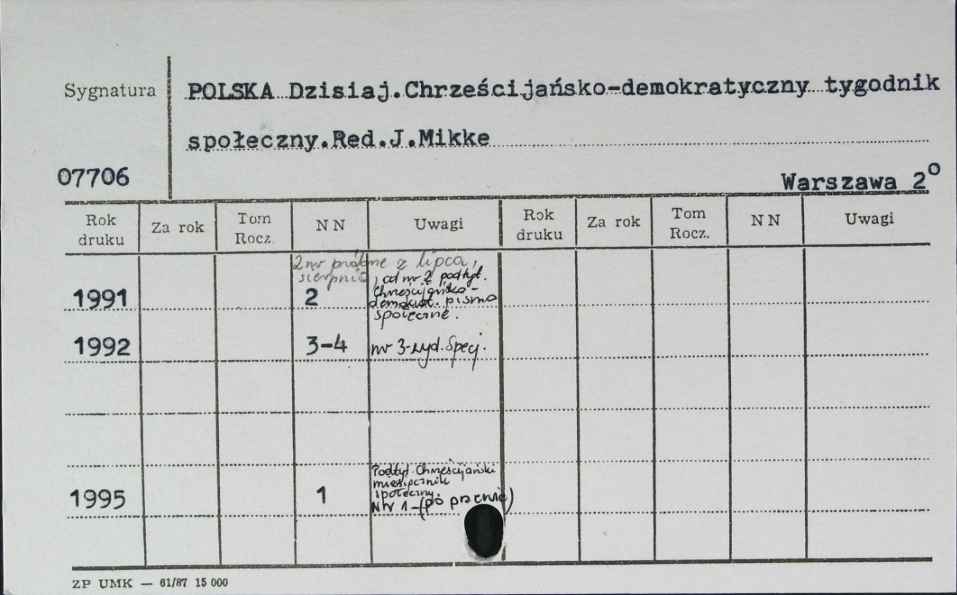 Sygnatura
POLSKA Dzisiaj.Chrześcijańsko-demokratyczny tygodnik
społeczny.Red.J.Mikke
07706
Warszawa 2°
Rok druku Za rok Tom Rocz. NN Uwagi Rok druku Za rok Tom Rocz. NN Uwagi
2 nr próbne z lipca,
sierpnia, od nr 2 podtyt.
1991 2 Chrześcijańsko-
demokrat. pismo
społeczne.
1992 3-4 nr 3-wyd. Specj.
Podtyt. Chrześcijański
miesięcznik
1995 1 społeczny.
Nr 1-(po przerwie)
ZP UMK — 61/87 15 000